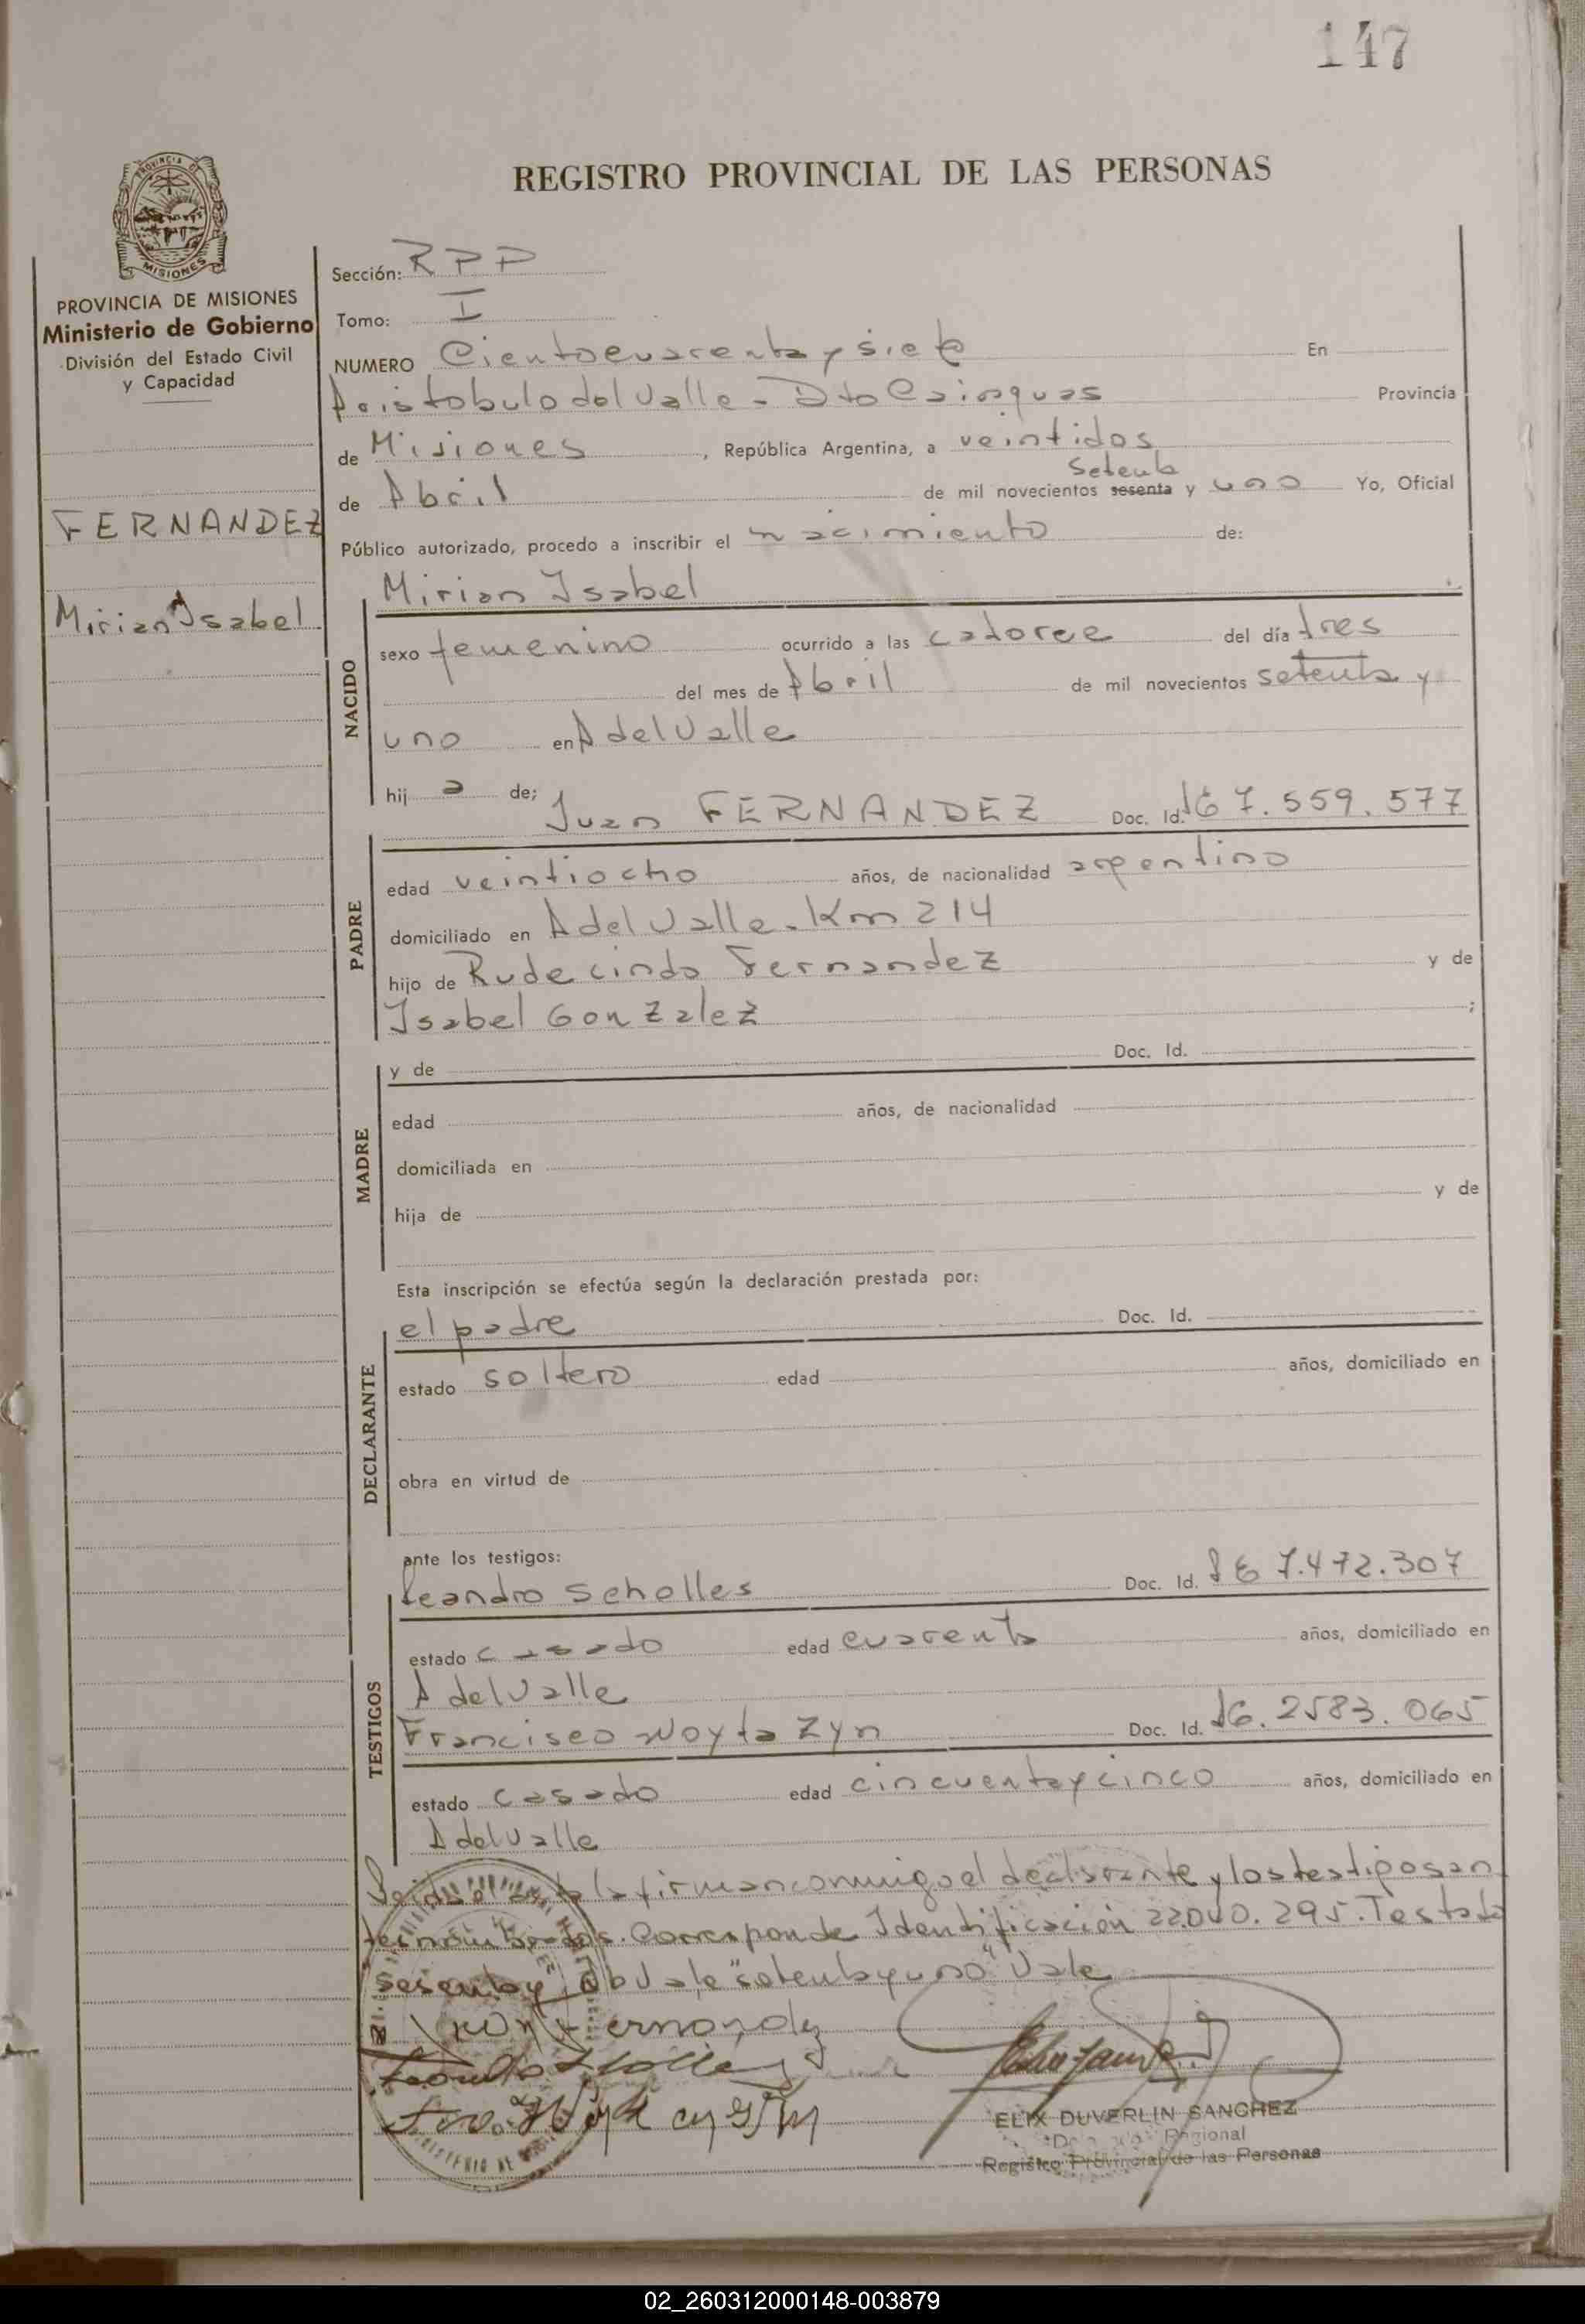 147
REGISTRO PROVINCIAL DE LAS PERSONAS
PROVINCIA DE MISIONES
Ministerio de Gobierno
División del Estado Civil
y Capacidad
FERNANDEZ
Mirian Isabel
Sección: RPP
Tomo: I
NUMERO Ciento cuarenta y siete En
Aristobulo del Valle - Dto Cainguas Provincia
de Misiones, República Argentina, a veintidos
setenta
de Abril de mil novecientos sesenta y uno Yo, Oficial
Público autorizado, procedo a inscribir el nacimiento de:
Mirian Isabel
NACIDO
sexo femenino ocurrido a las catorce del día tres
del mes de Abril de mil novecientos setenta y
uno en A del Valle
hija de; Juan FERNANDEZ Doc. Id. 7.559.577
PADRE
edad veintiocho años, de nacionalidad argentino
domiciliado en A del Valle - Km 214
hijo de Rudecindo Fernandez y de
Isabel Gonzalez ;
MADRE
y de Doc. Id.
edad años, de nacionalidad
domiciliada en
hija de y de
Esta inscripción se efectúa según la declaración prestada por:
DECLARANTE
el padre Doc. Id.
estado soltero edad años, domiciliado en
obra en virtud de
ante los testigos:
TESTIGOS
Leandro Scholles Doc. Id. 7.472.307
estado casado edad cuarenta años, domiciliado en
A del Valle
Francisco Woytazyn Doc. Id. 2583.065
estado casado edad cincuenta y cinco años, domiciliado en
A del Valle
la firman conmigo el declarante y los testigos an
tes nombrados. Corresponde Identificación 22.040.295. Testado
"sesenta y" no Vale "setenta y uno" Vale
Juan Fernandez
ELIX DUVERLIN SANCHEZ
Regional
Registro Provincial de las Personas
02_260312000148-003879